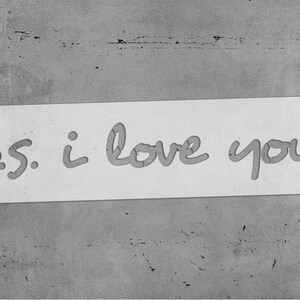 .s. i love you